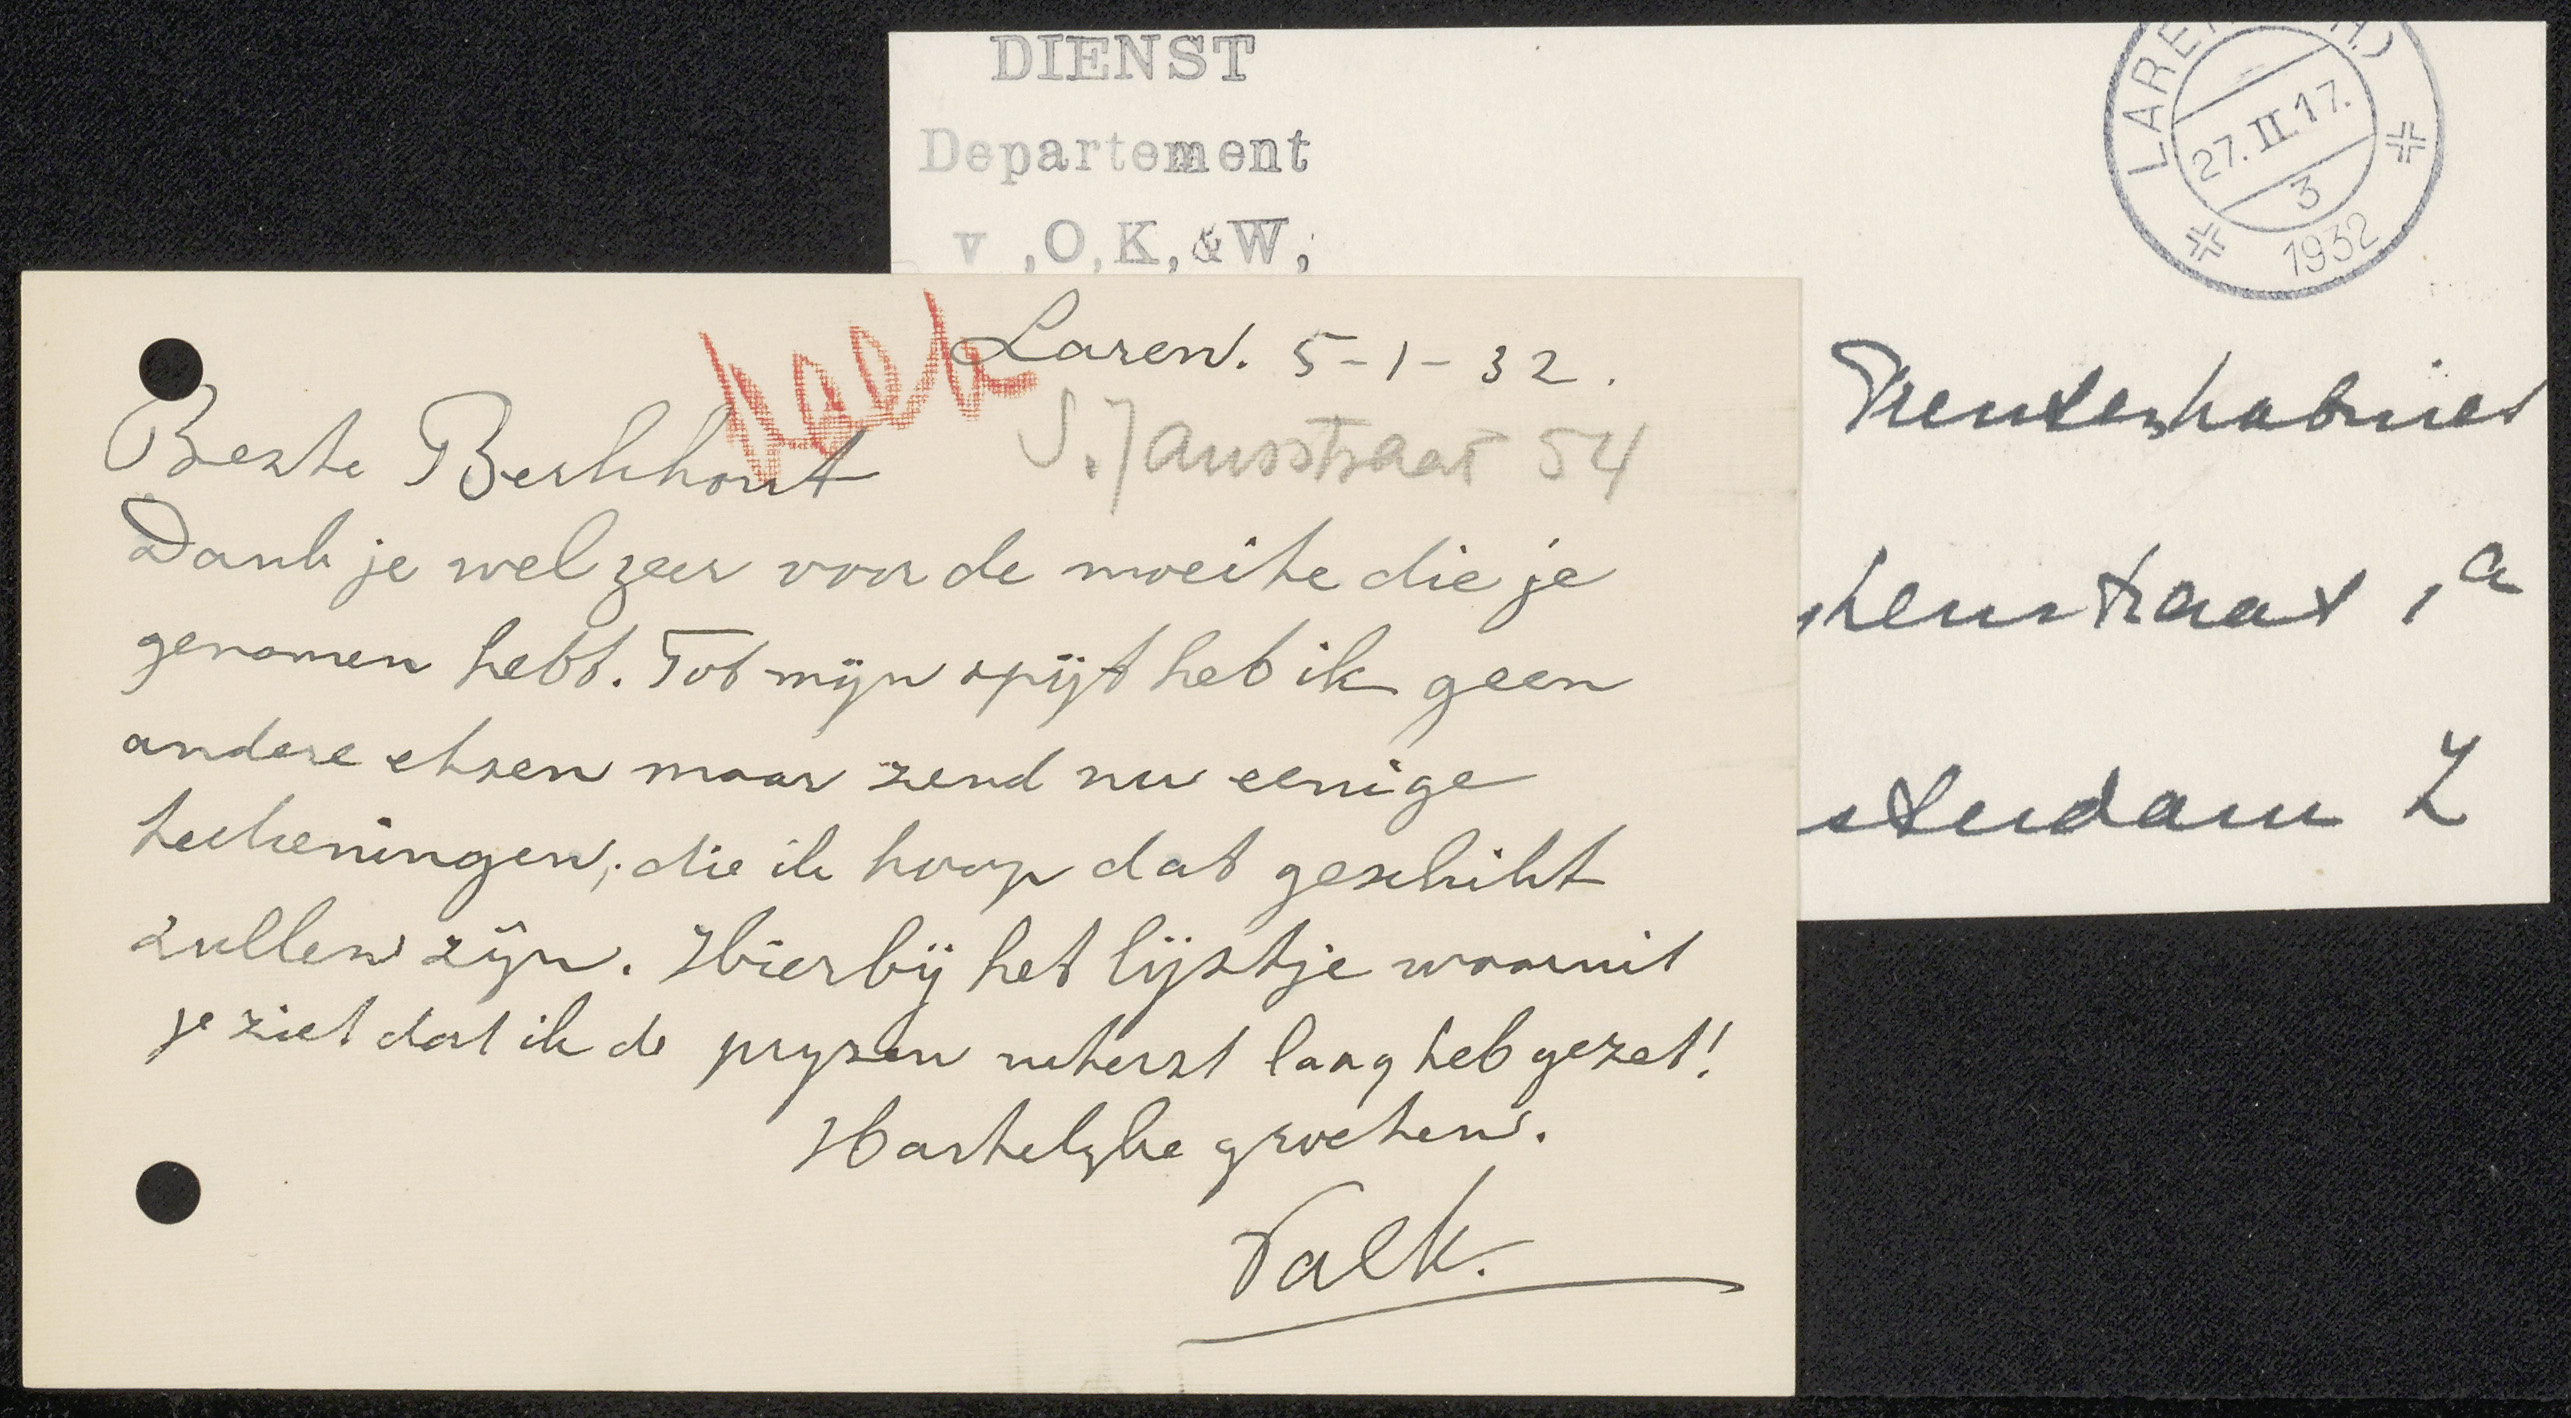 DIENST
Departement
v ,O,K,&W,
LAREN
27.II.17.
3
1932
Prentenkabinet
straat 1a
sterdam Z
Valk
Laren. 5-1-32.
S. Jansstraat 54
Beste Berkhout
Dank je wel zeer voor de moeite die je
genomen hebt. Tot mijn spijt heb ik geen
andere etsen maar zend nu eenige
teekeningen, die ik hoop dat geschikt
zullen zijn. Hierbij het lijstje waaruit
je ziet dat ik de prijzen uiterst laag heb gezet!
Hartelijke groeten.
Valk.